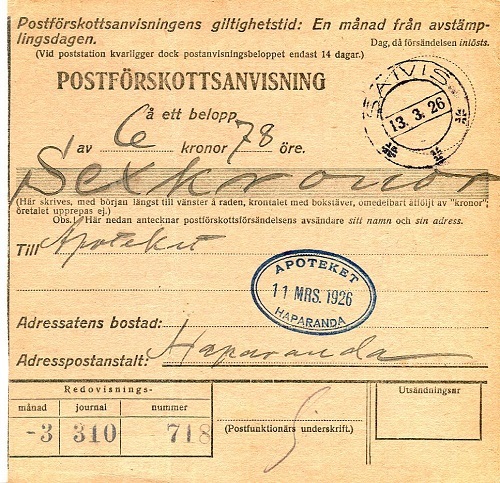 Postförskottsanvisningens giltighetstid: En månad från avstämp-
lingsdagen.
Dag, då försändelsen inlösts.
(Vid poststation kvarligger dock postanvisningsbeloppet endast 14 dagar.)
POSTFÖRSKOTTSANVISNING
SAIVIS
13. 3. 26
å ett belopp
av 6 kronor 78 öre.
Sex kronor
(Här skrives, med början längst till vänster å raden, krontalet med bokstäver, omedelbart åtföljt av "kronor";
öretalet upprepas ej.)
Obs.! Här nedan antecknar postförskottsförsändelsens avsändare sitt namn och sin adress.
Till Apoteket
APOTEKET
11 MRS. 1926
HAPARANDA
Adressatens bostad:
Adresspostanstalt: Haparanda
Redovisnings-
månad journal nummer
-3 310 718
(Postfunktionärs underskrift.)
Utsändningsnr